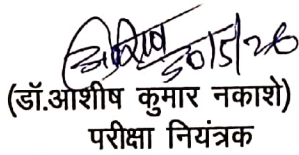 20/5/26
(डॉ.आशीष कुमार नकाशे)
परीक्षा नियंत्रक